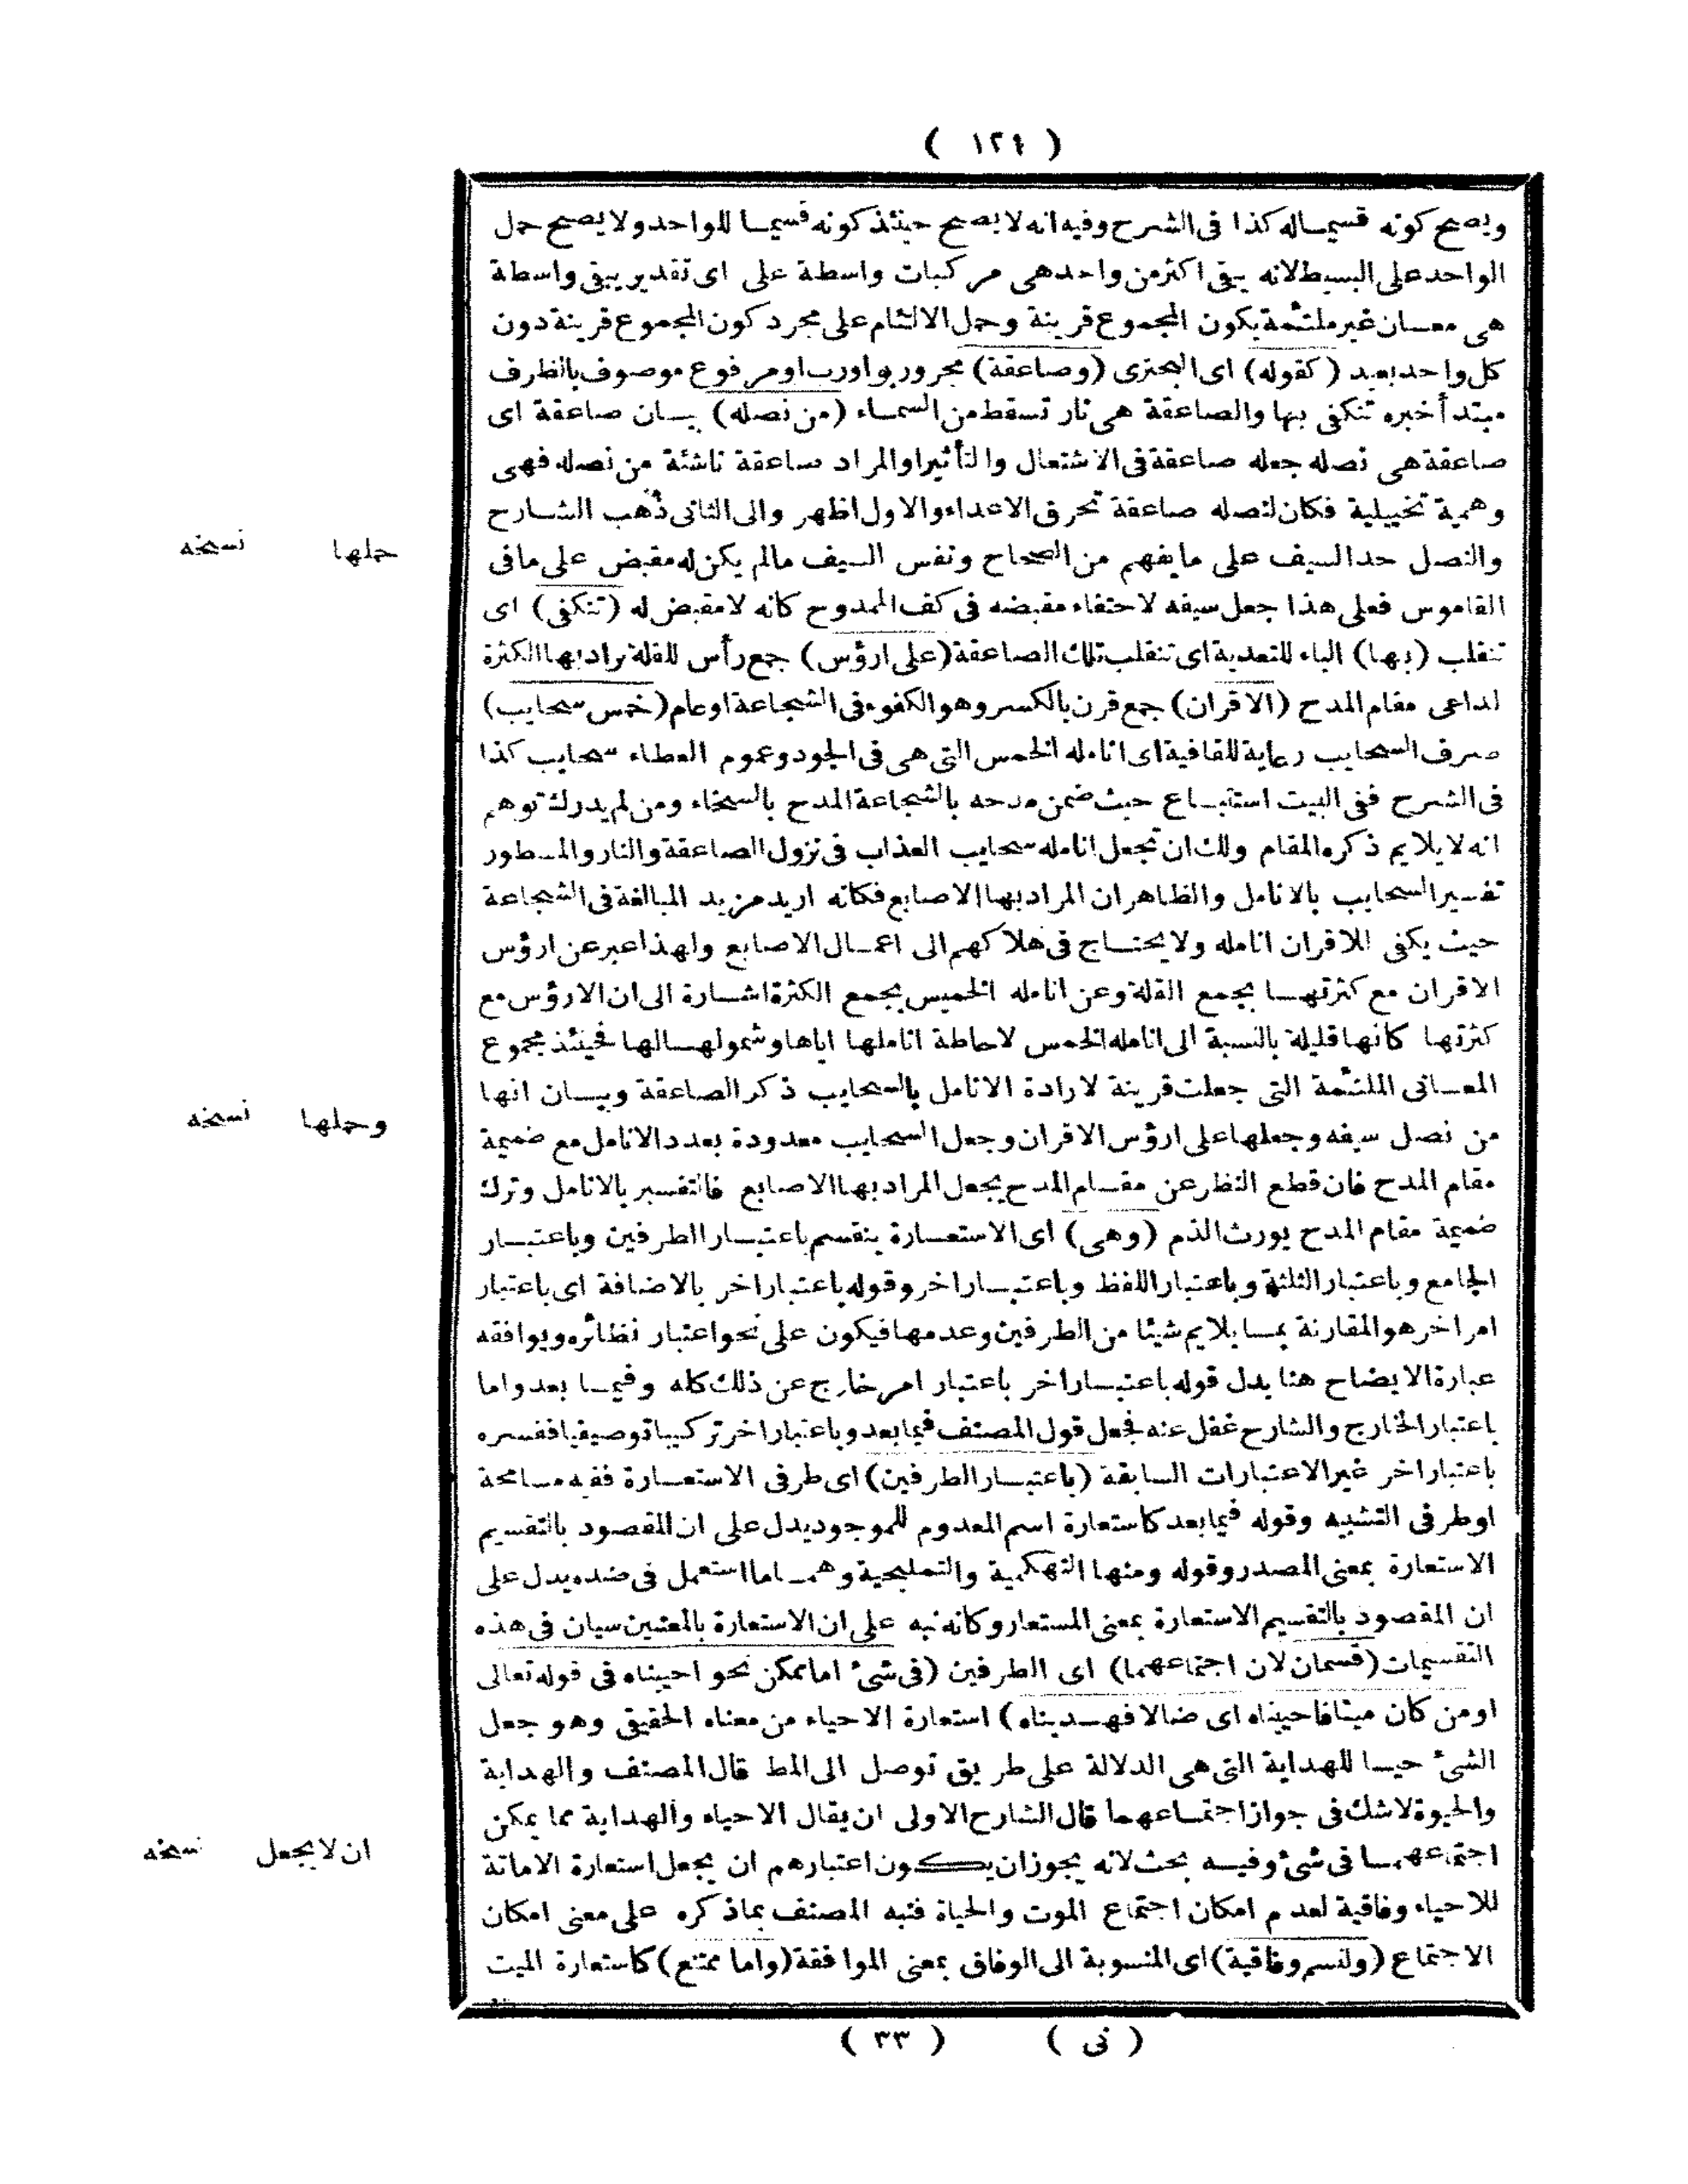 ( ١٢٩ )
ويصح كونه قسيماله كذا فى الشرح وفيه انه لا يصح حينئذ كونه قسيما للواحد ولا يصح حمل
الواحد على البسيط لانه يبقى اكثر من واحد هى مركبات واسطة على اى تقدير يبقى واسطة
هى معان غير ملتئمة يكون المجموع قرينة وحمل الالتئام على مجرد كون المجموع قرينة دون
كل واحد بعيد (كقوله) اى البحترى (وصاعقة) مجرور بواو رب او مرفوع موصوف بالظرف
مبتدأ خبره تنكفى بها والصاعقة هى نار تسقط من السماء (من نصله) بيان صاعقة اى
صاعقة هى نصله جعله صاعقة فى الاشتعال والتأثير او المراد صاعقة ناشئة من نصله فهى
وهمية تخييلية فكان لنصله صاعقة تحرق الاعداء والاول اظهر والى الثانى ذهب الشارح
والنصل حد السيف على ما يفهم من الصحاح ونفس السيف مالم يكن له مقبض على مافى
حملها نسخه
القاموس فعلى هذا جعل سيفه لاختفاء مقبضه فى كف الممدوح كانه لا مقبض له (تنكفى) اى
تنقلب (بها) الباء للتعدية اى تنقلب تلك الصاعقة (على ارؤس) جمع رأس للقلة يراد بها الكثرة
لداعى مقام المدح (الاقران) جمع قرن بالكسر وهو الكفوء فى الشجاعة او عام (خمس سحايب)
صرف السحايب رعاية للقافية اى انامله الخمس التى هى فى الجود وعموم العطاء سحايب كذا
فى الشرح ففى البيت استتباع حيث ضمن مدحه بالشجاعة المدح بالسخاء ومن لم يدرك توهم
انه لا يلايم ذكره المقام ولك ان تجعل انامله سحايب العذاب فى نزول الصاعقة والنار والمسطور
تفسير السحايب بالانامل والظاهر ان المراد بها الاصابع فكانه اريد مزيد المبالغة فى الشجاعة
حيث يكفى للاقران انامله ولا يحتاج فى هلاكهم الى اعمال الاصابع ولهذا عبر عن ارؤس
الاقران مع كثرتها بجمع القلة وعن انامله الخميس بجمع الكثرة اشارة الى ان الارؤس مع
كثرتها كانها قليلة بالنسبة الى انامله الخمس لاحاطة اناملها اياها وشمولها لها فحينئذ مجموع
المعانى الملتئمة التى جعلت قرينة لارادة الانامل بالسحايب ذكر الصاعقة وبيان انها
من نصل سيفه وجعلها على ارؤس الاقران وجعل السحايب معدودة بعدد الانامل مع ضميمة
وحملها نسخه
مقام المدح فان قطع النظر عن مقام المدح يجعل المراد بها الاصابع فالتفسير بالانامل وترك
ضميمة مقام المدح يورث الذم (وهى) اى الاستعارة ينقسم باعتبار الطرفين وباعتبار
الجامع وباعتبار الثلثة وباعتبار اللفظ وباعتبار اخر وقوله باعتبار اخر بالاضافة اى باعتبار
امر اخر هو المقارنة بما يلايم شيئا من الطرفين وعدمها فيكون على نحو اعتبار نظائره ويوافقه
عبارة الايضاح هنا بدل قوله باعتبار اخر باعتبار امر خارج عن ذلك كله وفيما بعد واما
باعتبار الخارج والشارح غفل عنه فجعل قول المصنف فيما بعد وباعتبار اخر تركيبا توصيفيا ففسره
باعتبار اخر غير الاعتبارات السابقة (باعتبار الطرفين) اى طرفى الاستعارة ففيه مسامحة
او طرفى التشبيه وقوله فيما بعد كاستعارة اسم المعدوم للموجود يدل على ان المقصود بالتقسيم
الاستعارة بمعنى المصدر وقوله ومنها التهكمية والتمليحية وهما ما استعمل فى ضده يدل على
ان المقصود بالتقسيم الاستعارة بمعنى المستعار وكانه نبه على ان الاستعارة بالمعنيين سيان فى هذه
التقسيمات (قسمان لان اجتماعهما) اى الطرفين (فى شئ اما ممكن نحو احييناه فى قوله تعالى
اومن كان ميتا فاحييناه اى ضالا فهديناه) استعارة الاحياء من معناه الحقيقى وهو جعل
الشئ حيا للهداية التى هى الدلالة على طريق توصل الى المط قال المصنف والهداية
والحيوة لاشك فى جواز اجتماعهما قال الشارح الاولى ان يقال الاحياء والهداية مما يمكن
اجتماعهما فى شئ وفيه بحث لانه يجوز ان يكون اعتبارهم ان يجعل استعارة الاماتة
ان لا يجعل نسخه
للاحياء وفاقية لعدم امكان اجتماع الموت والحياة فنبه المصنف بماذكره على معنى امكان
الاجتماع (ولتسم وفاقية) اى المنسوبة الى الوفاق بمعنى الموافقة (واما ممتنع) كاستعارة الميت
( نى ) ( ٣٣ )